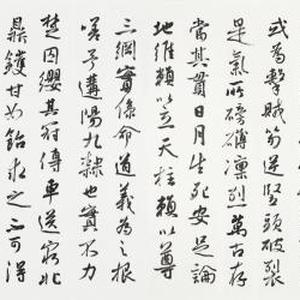 或為擊賊笏逆豎頭破裂
是氣所磅礴凜烈萬古存
當其貫日月生死安足論
地維賴以立天柱賴以尊
三綱實係命道義為之根
嗟予遘陽九隸也實不力
楚囚纓其冠傳車送窮北
鼎鑊甘如飴求之不可得